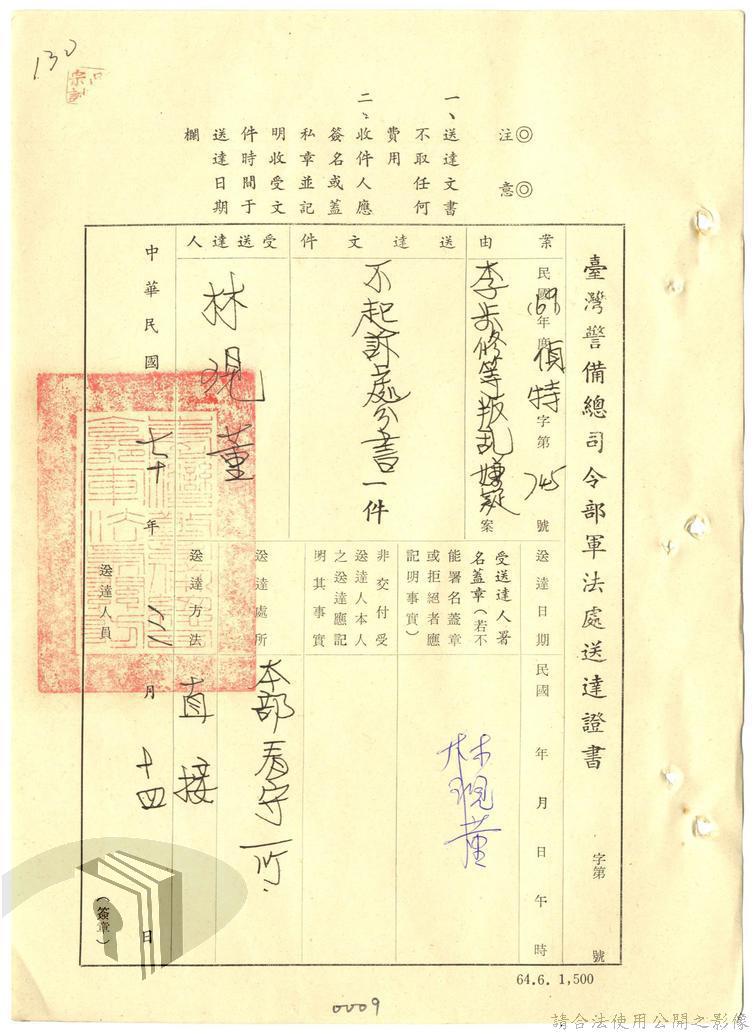 130
注意
一、送達文書不取任何費用
二、收件人應簽名或蓋私章並記明收受文件時間于送達日期欄
臺灣警備總司令部軍法處送達證書
字第 號
案由
民國(69)年度偵特字第745號
李步修等叛亂嫌疑案
送達文件
不起訴處分書一件
受送達人
林現董
送達日期
民國 年 月 日 午 時
受送達人署名蓋章(若不能署名蓋章或拒絕者應記明事實)
林現董
非交付受送達人本人之送達應記明其事實
送達處所
本部看守所
送達方法
直接
中華民國七十年二月十四日
送達人員
(簽章)
64.6. 1,500
0009
請合法使用公開之影像